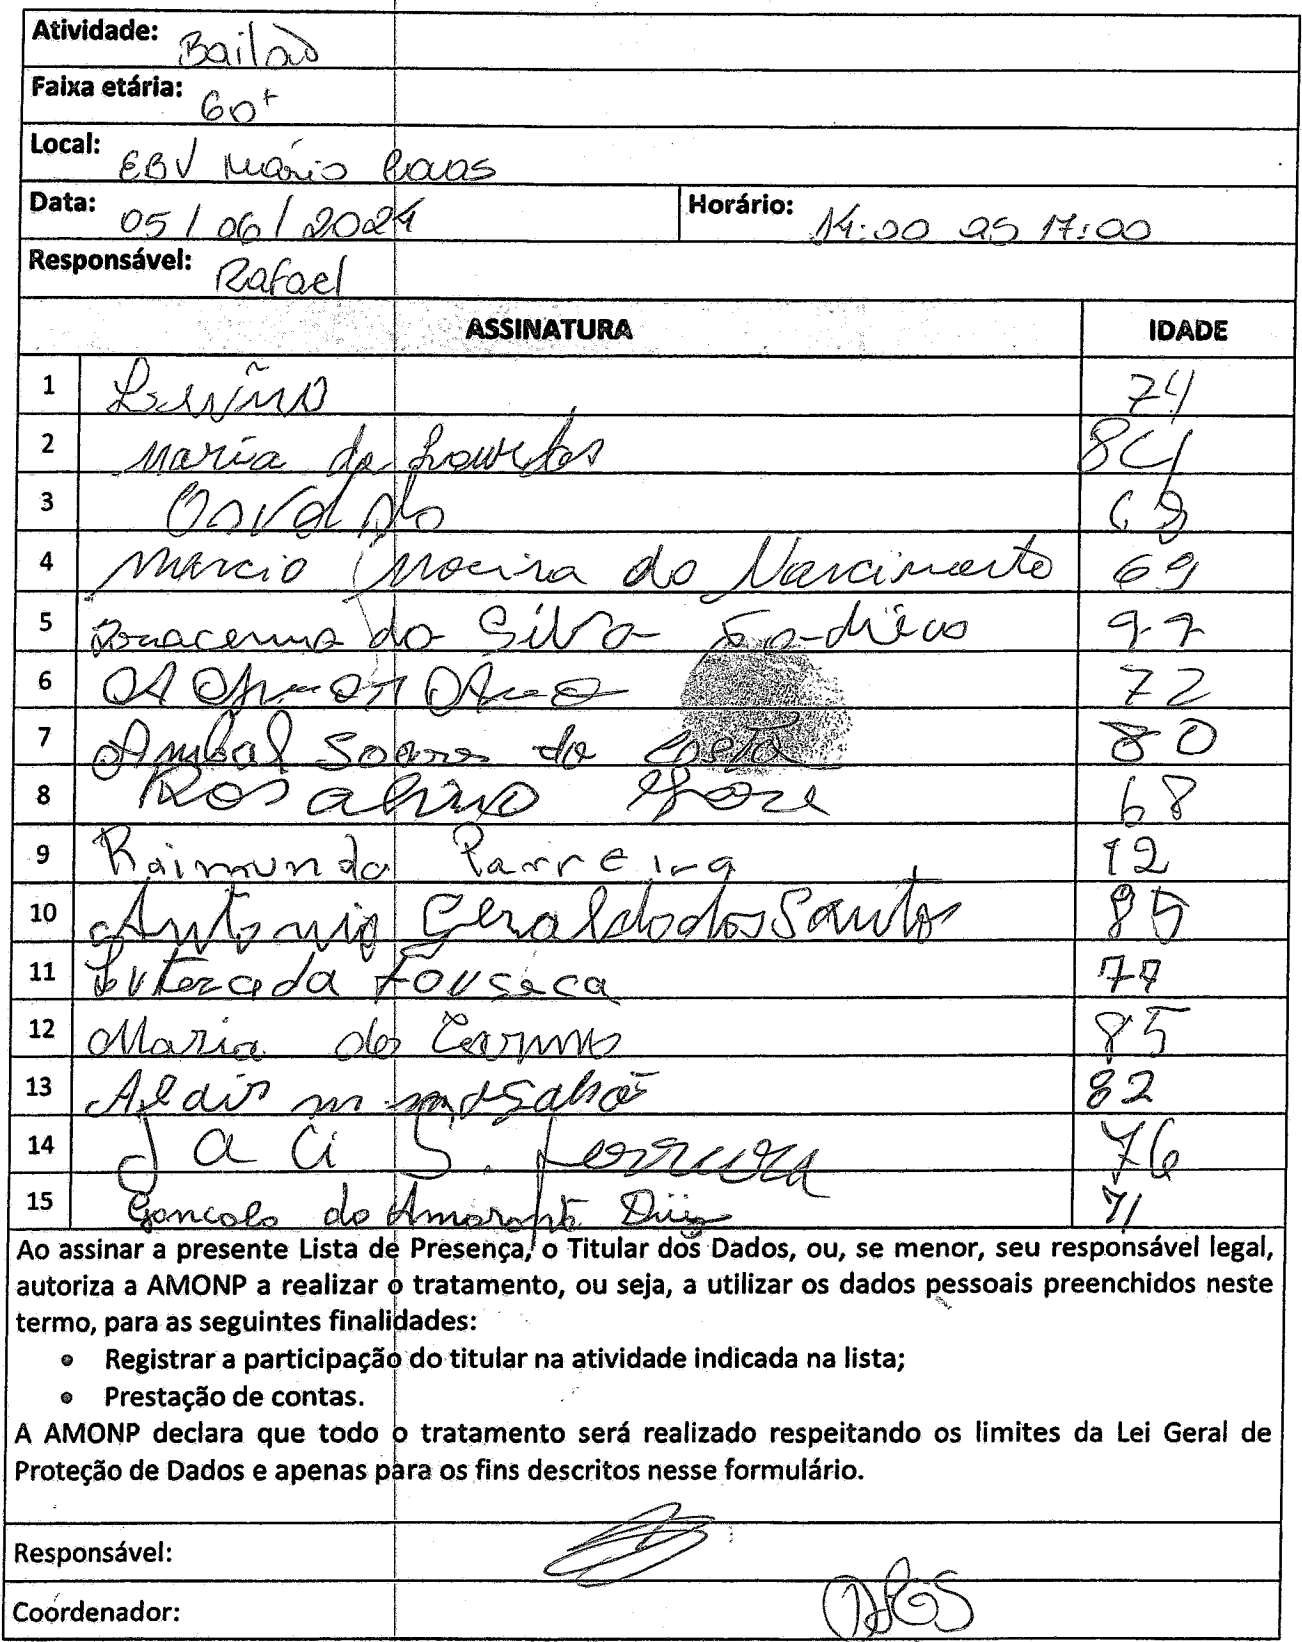 Atividade: Bailão
Faixa etária: 60+
Local: EBV Mário
Data: 05/06/2024 Horário: 14:00 as 17:00
Responsável: Rafael
ASSINATURA IDADE
1 74
2 Maria de Lourdes 84
3 Osvaldo
4 Marcio Moreira do Nascimento 69
5 da Silva
6 72
7 Anibal Soares da Costa 80
8 Rosalino 68
9 Raimundo Parreira 12
10 Antonio Geraldo dos Santos 85
11 Fonseca 77
12 Maria do Carmo 85
13 Aldir m 82
14 Jaci S. Ferreira 76
15 Goncalo do Amarante Diiz 71
Ao assinar a presente Lista de Presença, o Titular dos Dados, ou, se menor, seu responsável legal,
autoriza a AMONP a realizar o tratamento, ou seja, a utilizar os dados pessoais preenchidos neste
termo, para as seguintes finalidades:
• Registrar a participação do titular na atividade indicada na lista;
• Prestação de contas.
A AMONP declara que todo o tratamento será realizado respeitando os limites da Lei Geral de
Proteção de Dados e apenas para os fins descritos nesse formulário.
Responsável:
Coordenador: